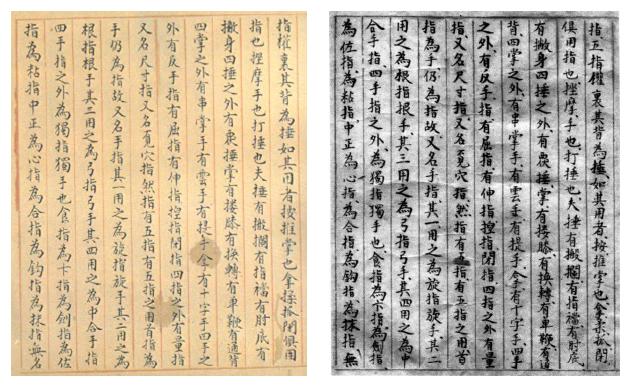 指權裏其背為捶如其用者按推掌也拿揉抓閉俱用
指也挫摩手也打捶也夫捶有搬攔有指襠有肘底有
撇身四捶之外有覆捶掌有摟膝有換轉有單鞭有通背
四掌之外有串掌手有雲手有提手合有十字手四手之
外有反手指有屈指有伸指捏指閉指四指之外有量指
又名尺寸指又名覓穴指然指有五指有五指之用首指為
手仍為指故又名手指其一用之為旋指旋手其二用之為
根指根手其三用之為弓指弓手其四用之為中合手指
四手指之外為獨指獨手也食指為卞指為劍指為佐
指為粘指中正為心指為合指為鈎指為抹指無名
指五指權裏其背為捶如其用者按推掌也拿柔抓閉
俱用指也挫摩手也打捶也夫捶有搬攔有指襠有肘底
有撇身四捶之外有覆捶掌有摟膝有換轉有單鞭有通
背四掌之外有串掌手有雲手有提手合有十字手四手
之外有反手指有屈指有伸指捏指閉指四指之外有量
指又名尺寸指又名覓穴指然指有五指有五指之用首
指為手仍為指故又名手指其一用之為旋指旋手其二
用之為根指根手其三用之為弓指弓手其四用之為中
合手指四手指之外為獨指獨手也食指為卞指為劍指
為佐指為粘指中正為心指為合指為鈎指為抹指無